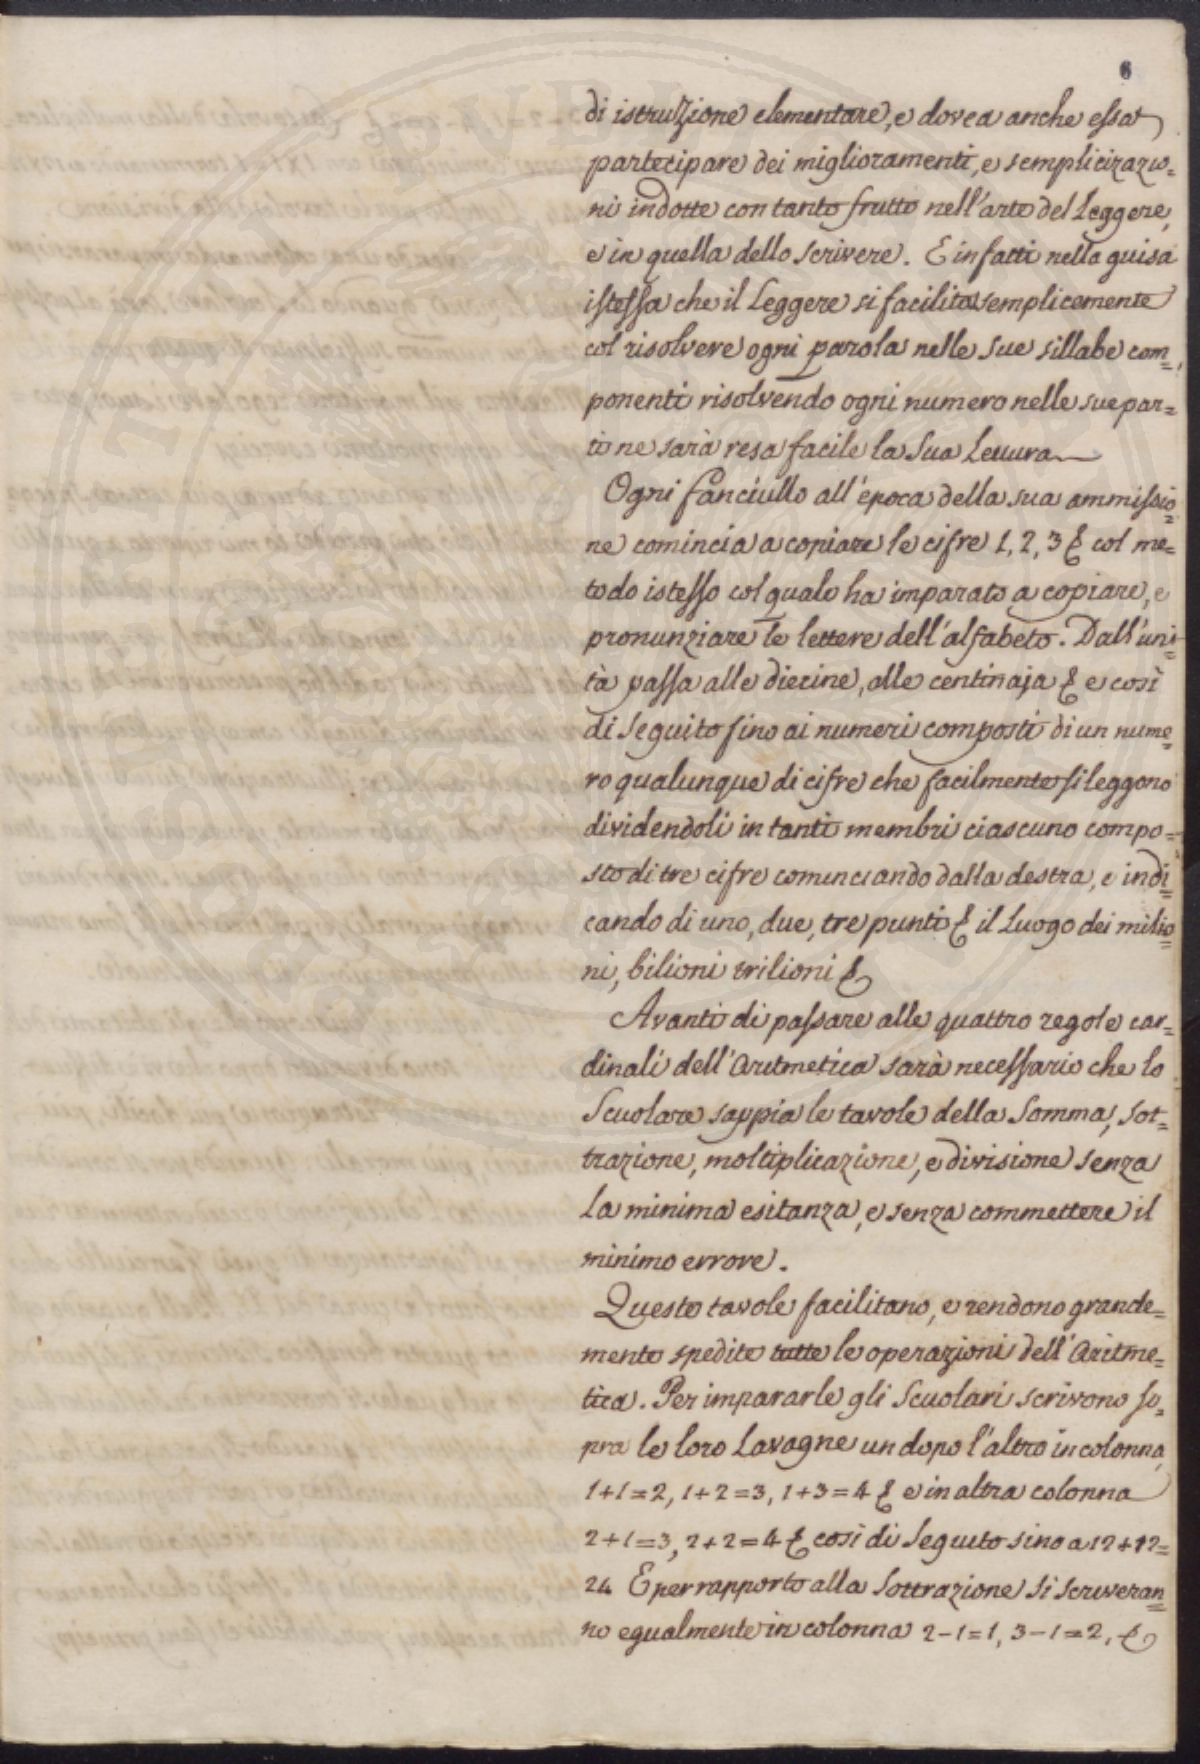 6
di istruzione elementare, e dovea anche essa
partecipare dei miglioramenti, e semplicizazio=
ni indotte con tanto frutto nell'arte del Leggere,
e in quella dello scrivere. E infatti nella guisa
istessa che il Leggere si facilita semplicemente
col risolvere ogni parola nelle sue sillabe com=
ponenti risolvendo ogni numero nelle sue par=
ti ne sarà resa facile la sua Lettura
Ogni fanciullo all'epoca della sua ammissio=
ne comincia a copiare le cifre 1, 2, 3 & col me=
todo istesso col quale ha imparato a copiare, e
pronunziare le lettere dell'alfabeto. Dall'uni=
tà passa alle diecine, alle centinaja & e così
di seguito fino ai numeri composti di un nume=
ro qualunque di cifre che facilmente si leggono
dividendoli in tanti membri ciascuno compo=
sto di tre cifre cominciando dalla destra, e indi=
cando di uno, due, tre punti & il luogo dei milio=
ni, bilioni trilioni &
Avanti di passare alle quattro regole car=
dinali dell'Aritmetica sarà necessario che lo
Scuolare sappia le tavole della Somma, Sot=
trazione, moltiplicazione, e divisione senza
la minima esitanza, e senza commettere il
minimo errore.
Queste tavole facilitano, e rendono grande=
mente spedite tutte le operazioni dell'Aritme=
tica. Per impararle gli Scuolari scrivono so=
pra le loro Lavagne un dopo l'altro in colonna,
1+1=2, 1+2=3, 1+3=4 & e in altra colonna
2+1=3, 2+2=4 & così di seguito sino a 12+12=
24 E per rapporto alla Sottrazione si scriveran=
no egualmente in colonna 2-1=1, 3-1=2, &